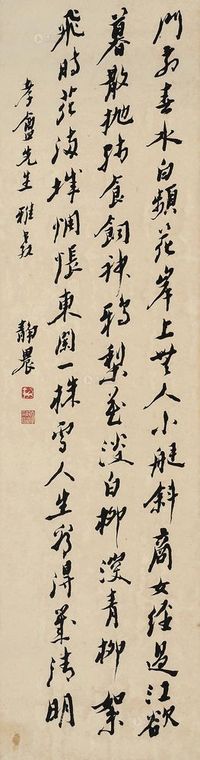 門前春水白蘋花岸上無人小艇斜商女經過江欲
暮散拋殘食飼神鴉梨花淡白柳深青柳絮
飛時花滿城惆悵東闌一株雪人生看得幾清明
孝盧先生雅教
靜農